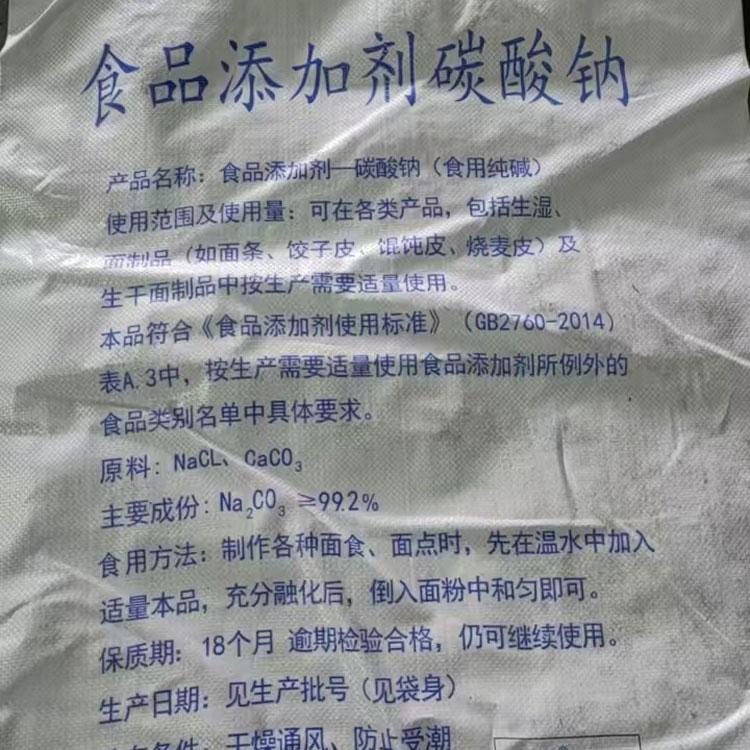 食品添加剂碳酸钠
产品名称：食品添加剂—碳酸钠（食用纯碱）
使用范围及使用量：可在各类产品，包括生湿、
面制品（如面条、饺子皮、馄饨皮、烧麦皮）及
生干面制品中按生产需要适量使用。
本品符合《食品添加剂使用标准》（GB2760-2014）
表A.3中，按生产需要适量使用食品添加剂所例外的
食品类别名单中具体要求。
原料：NaCL、CaCO₃
主要成份：Na₂CO₃ ≥99.2%
食用方法：制作各种面食、面点时，先在温水中加入
适量本品，充分融化后，倒入面粉中和匀即可。
保质期：18个月 逾期检验合格，仍可继续使用。
生产日期：见生产批号（见袋身）
条件：干燥通风、防止受潮